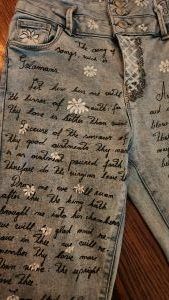 The song of
songs, which is
Solomon's.
Let him kiss me with
the kisses of mouth for
thy love is better than wine
Because of the savour of
thy good ointments thy name
is as ointment poured forth
therefore do the virgins love thee
me, we will run
after thee the king hath
brought me into his chambers
we will be glad and re-
in thee, we will re-
member thy love more
than wine: the upright
love thee